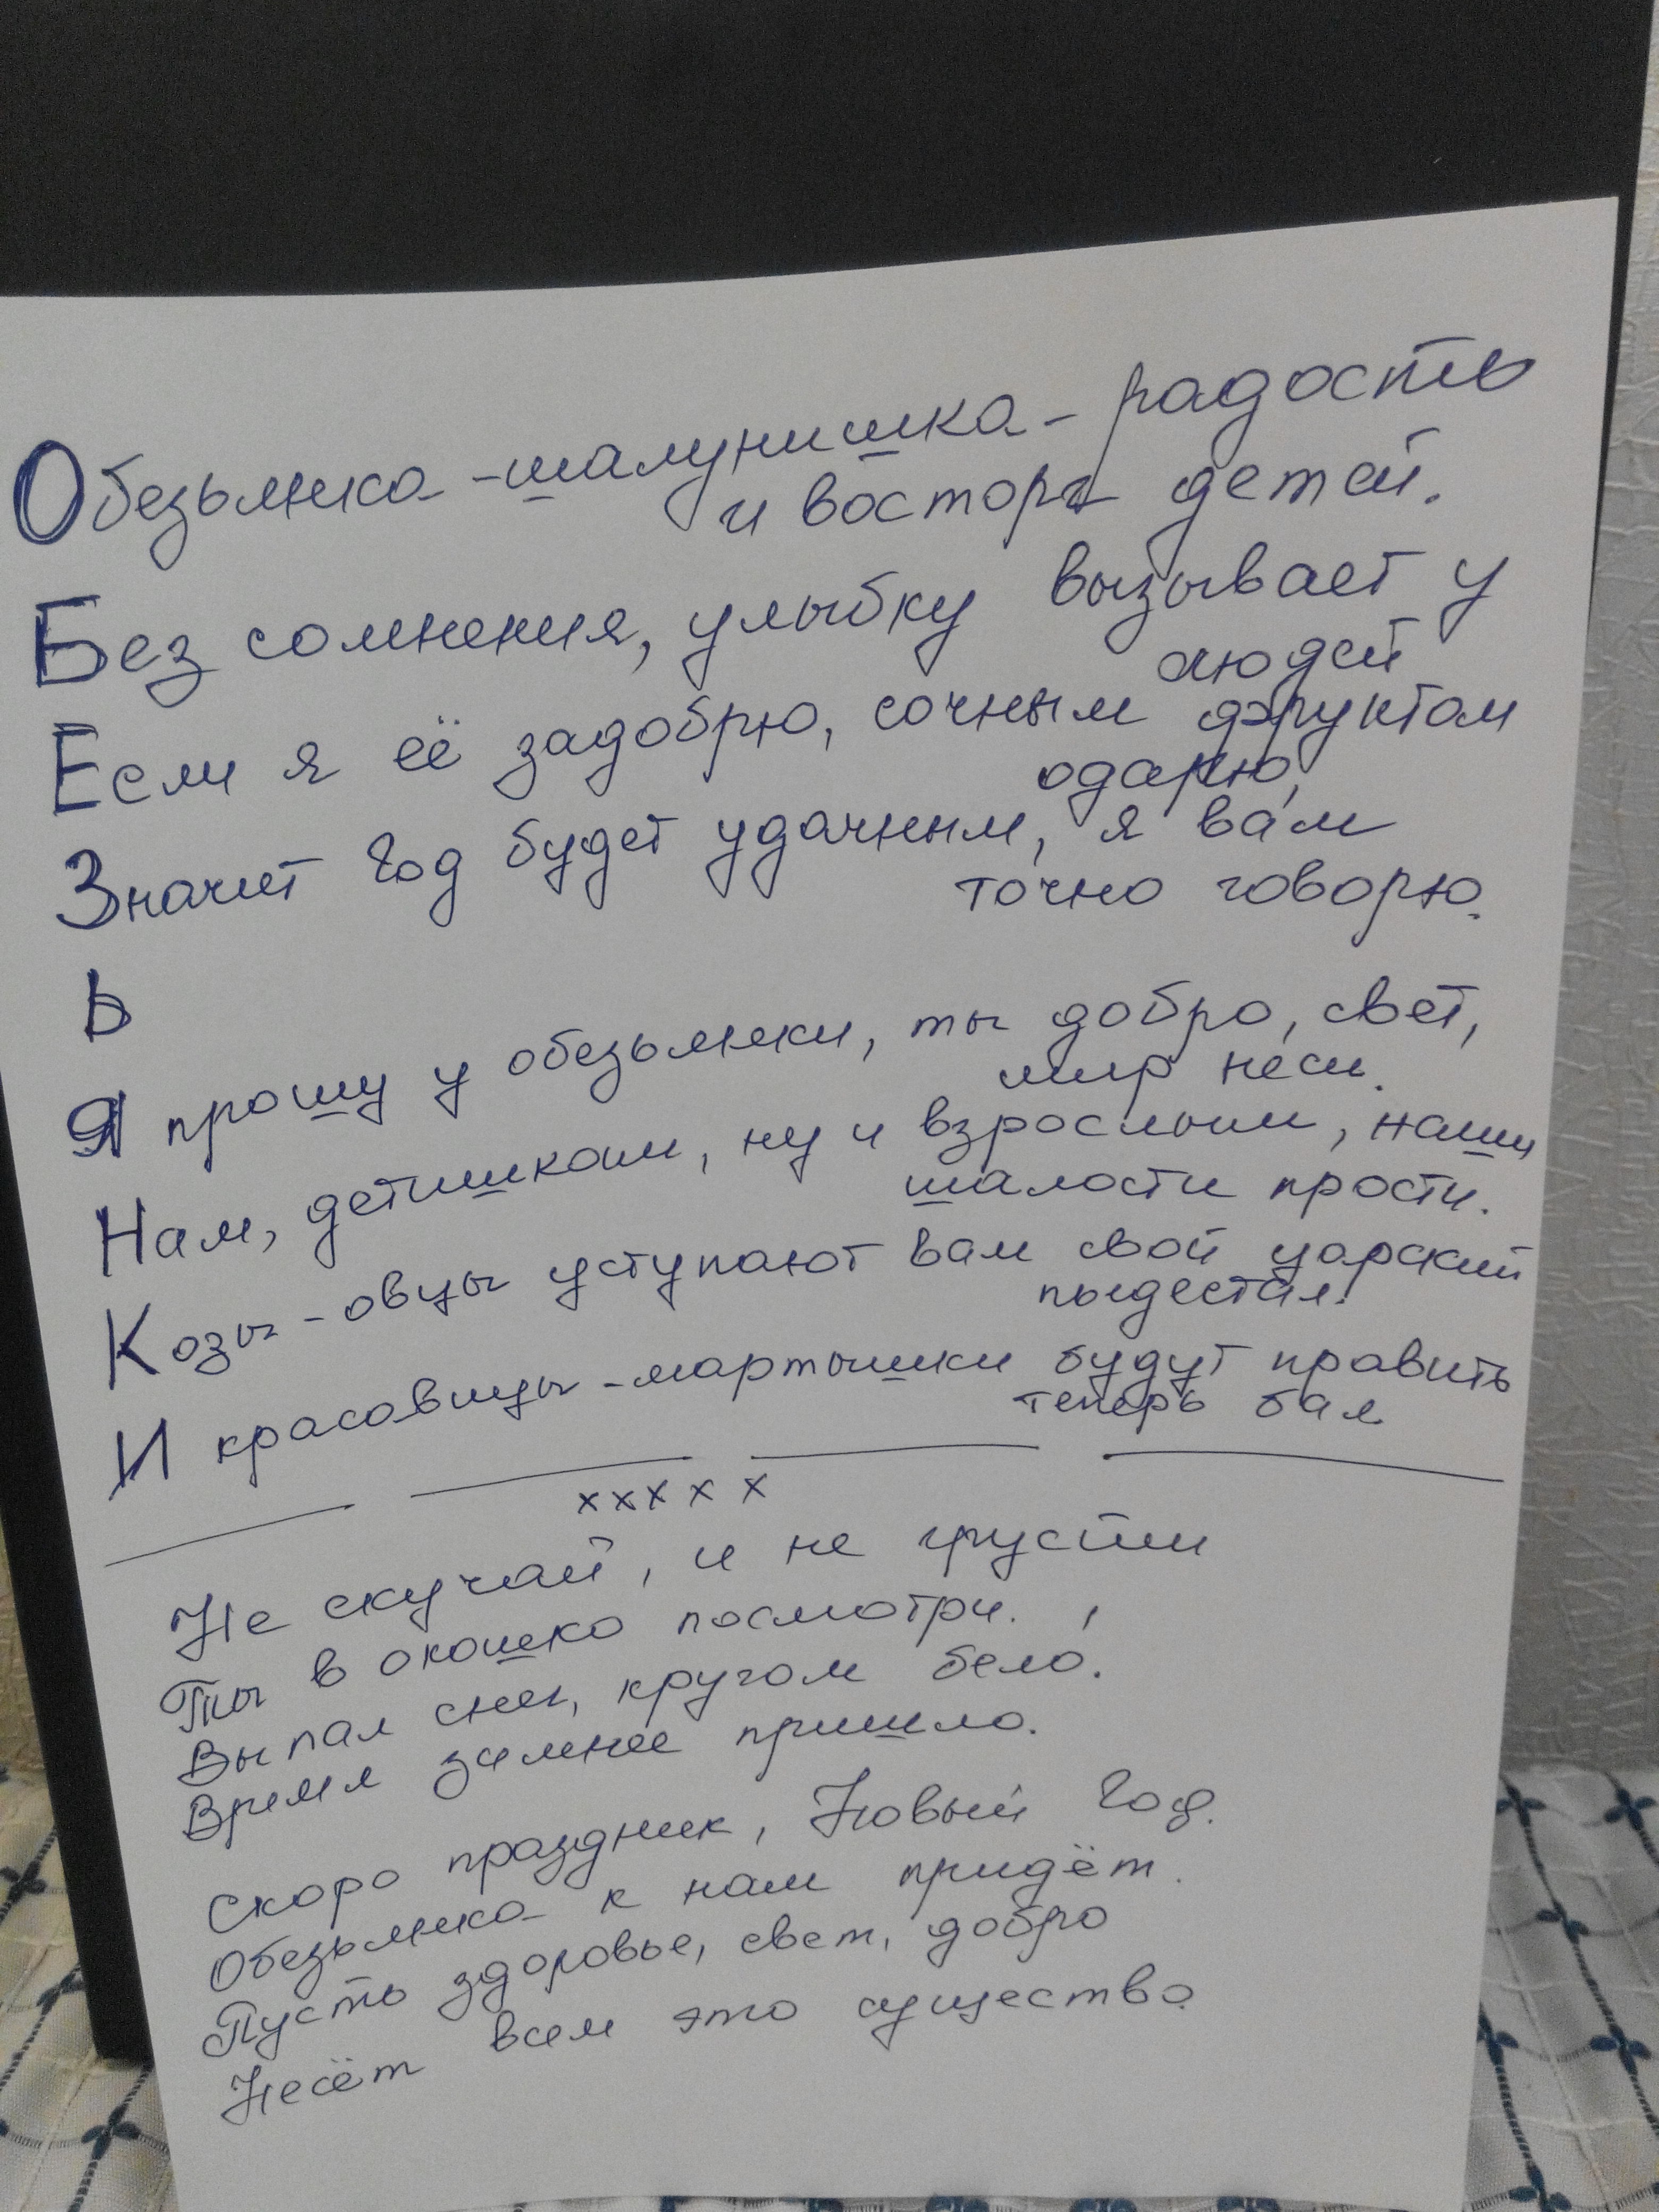 Обезьянка-шалунишка-радость
и восторг детей.
Без сомнения, улыбку вызывает у
людей
Если я её задобрю, сочным фруктом
одарю,
Значит год будет удачным, я вам
точно говорю.
Ь
Я прошу у обезьянки, ты добро, свет,
мир неси.
Нам, детишкам, ну и взрослым, наши
шалости прости.
Козы-овцы уступают вам свой царский
пьедестал.
И красавицы-мартышки будут править
теперь бал
ххххх
Не скучай, и не грусти
Ты в окошко посмотри.
Выпал снег, кругом бело.
Время зимнее пришло.
Скоро праздник, Новый Год.
Обезьянка к нам придёт.
Пусть здоровье, свет, добро
Несёт всем это существо.